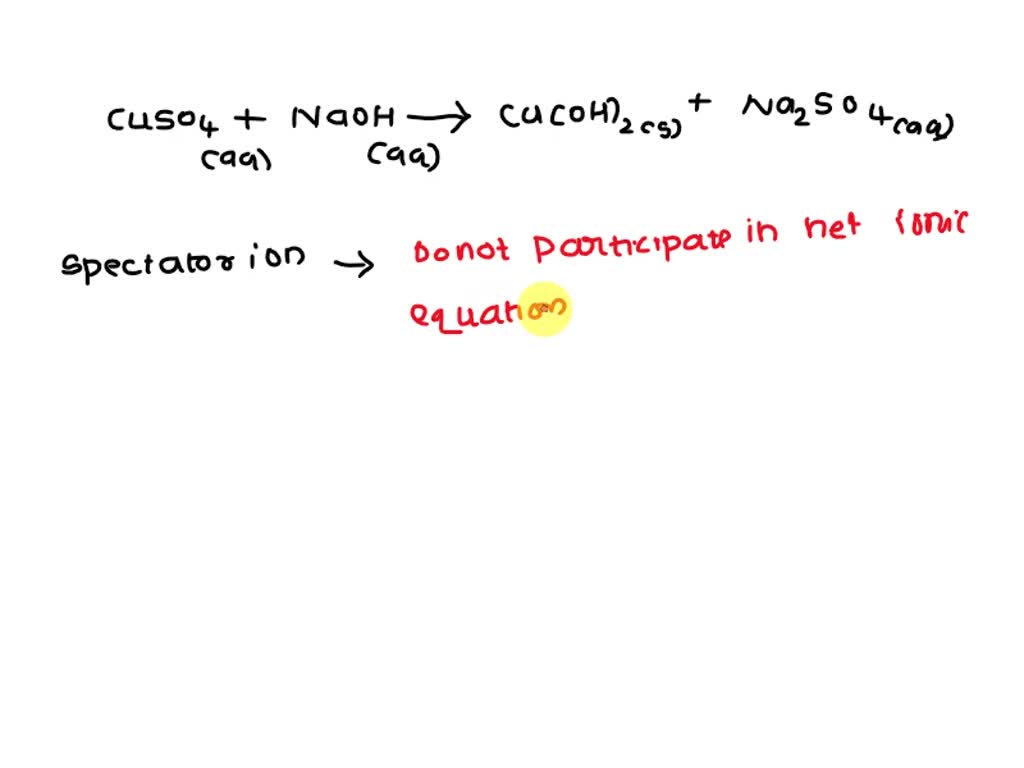 CuSO4 + NaOH → Cu(OH)2(s) + Na2SO4(aq)
(aq) (aq)
Spectator ion → Do not participate in net ionic
equation